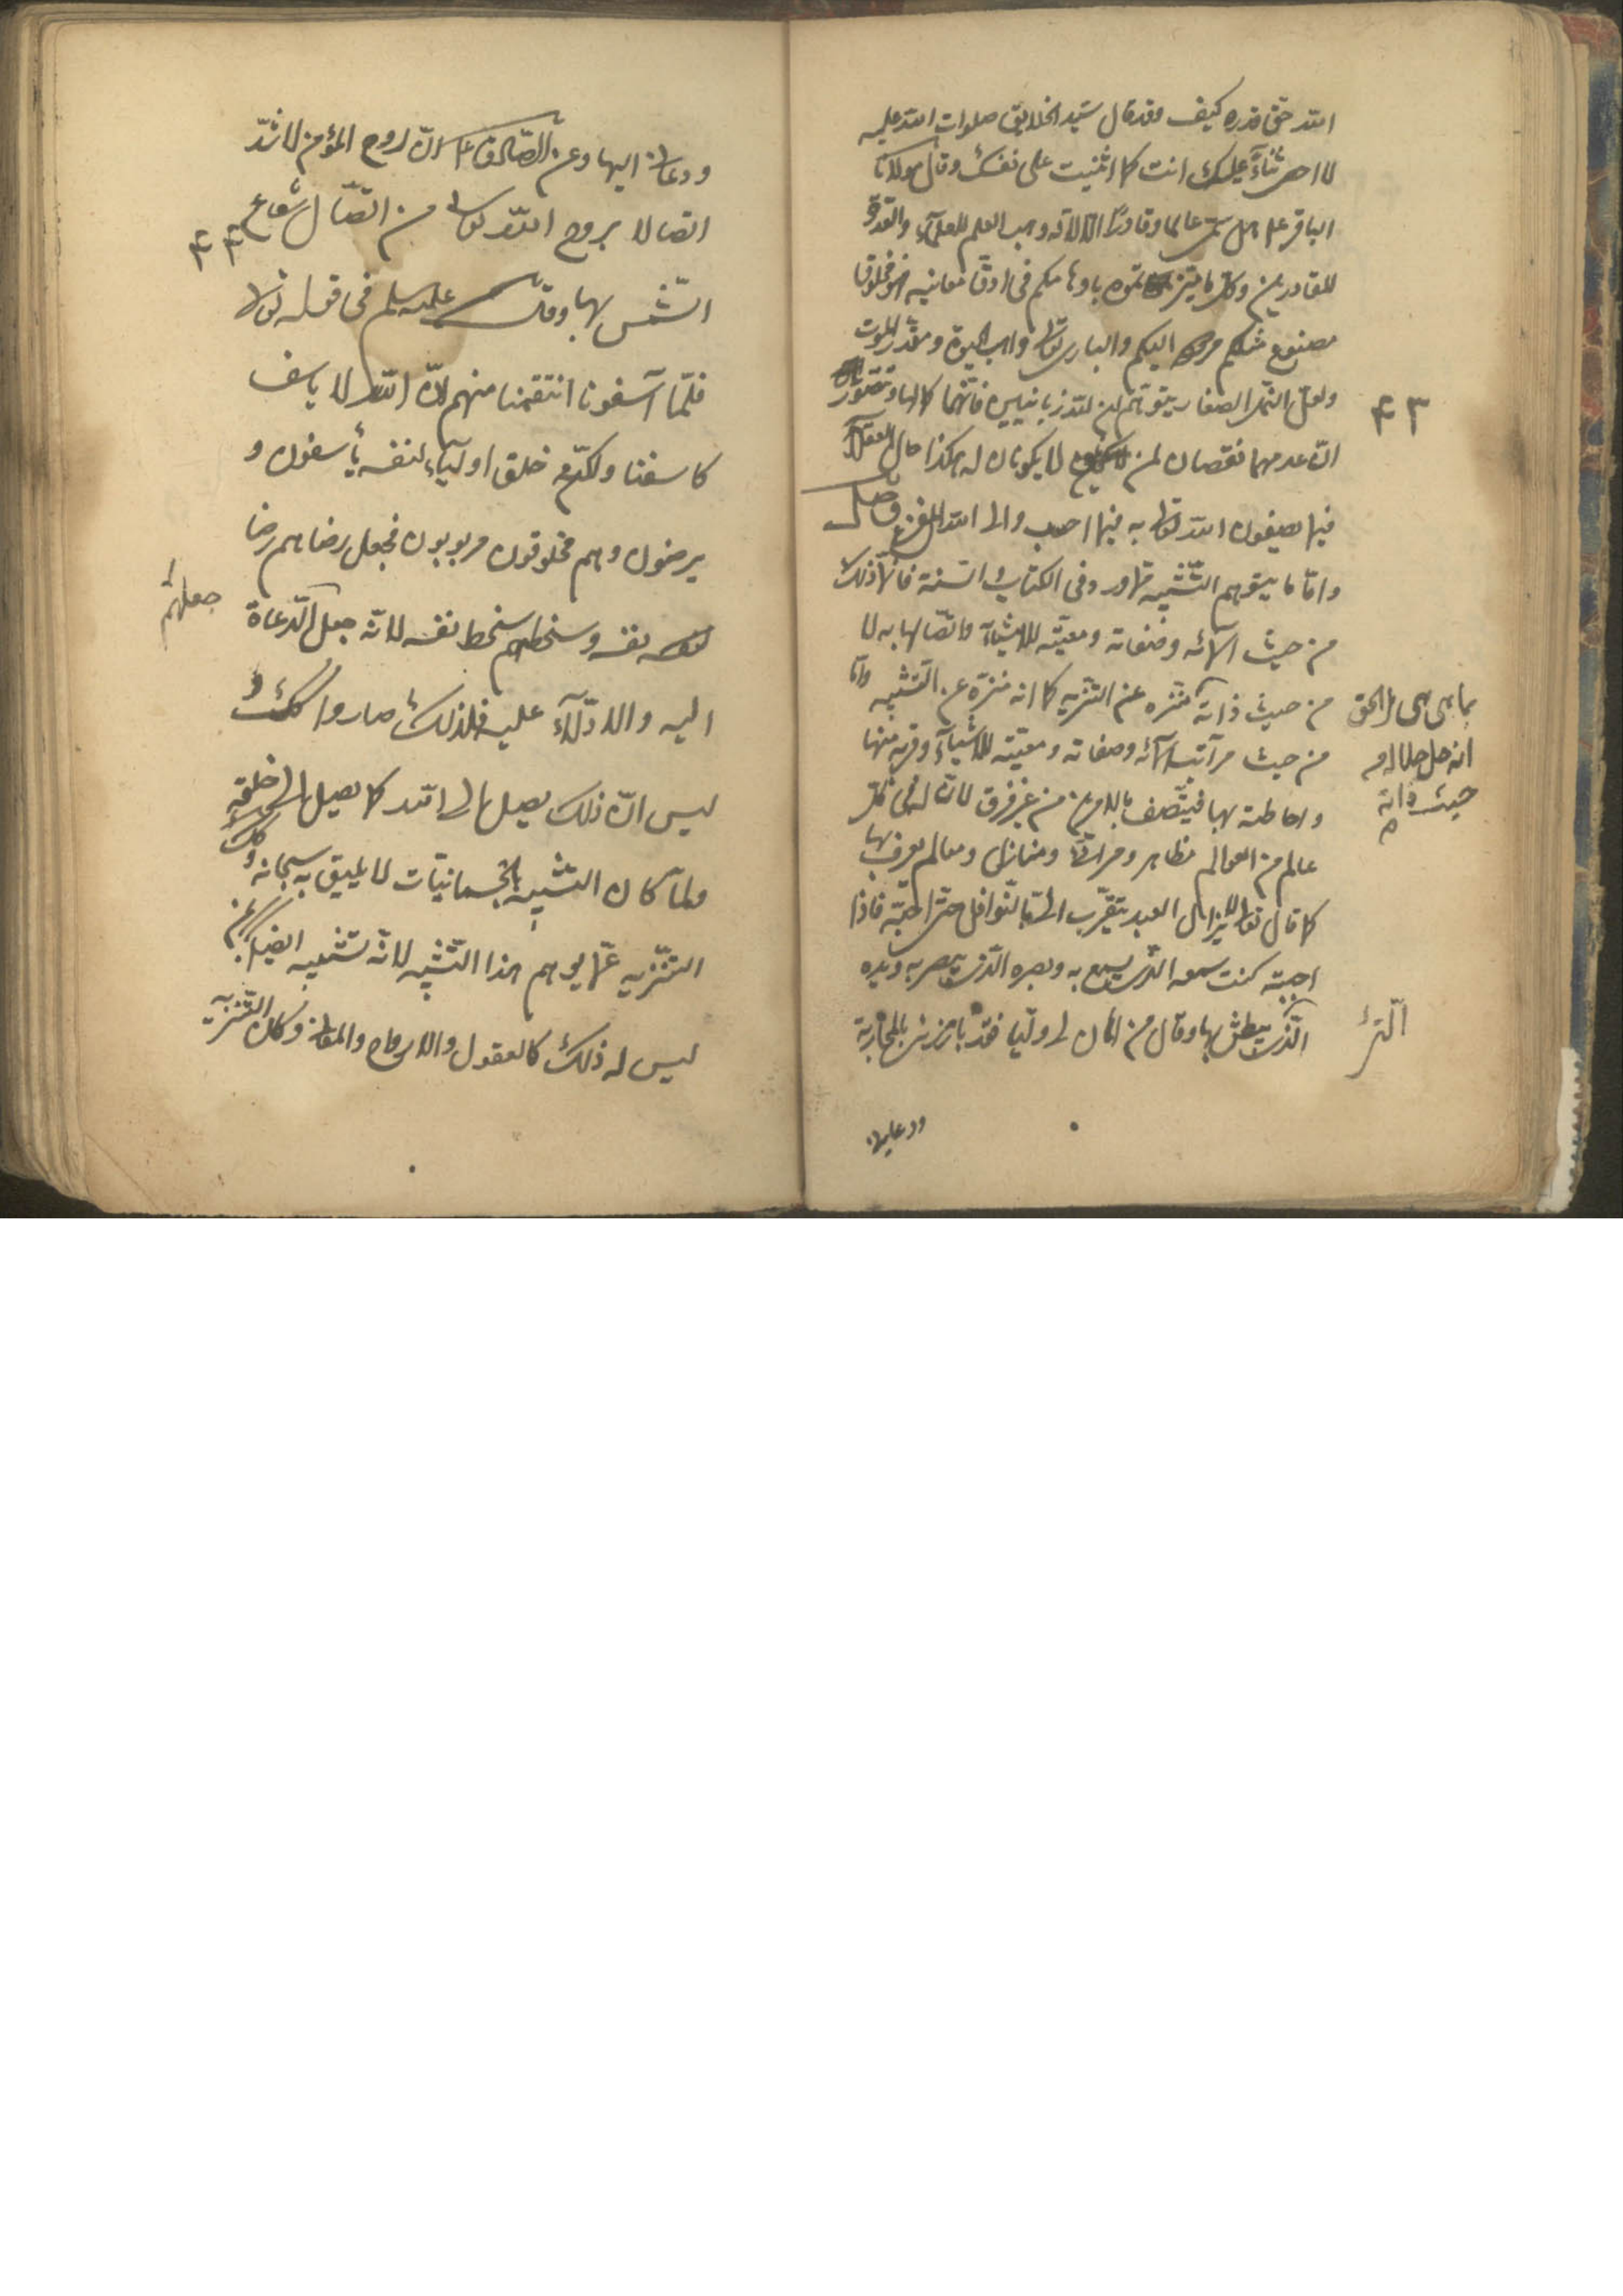 الله حق قدره كيف وقد قال سيد الخلايق صلوات الله عليه
لا احصى ثناءً عليك انت كما اثنيت على نفسك وقال مولانا
الباقر عليه هل سمّى عالما وقادرًا الّا لانّه وهب العلم للعلمآء والقدرة
للقادرين وكل ما ميّزتموه باوهامكم فى ادقّ معانيه فهو مخلوق
مصنوع مثلكم مردود اليكم والبارى تعالى واهب الحيوة ومقدّر الموت
ولعلّ النمل الصغار يتوهّم ان لله زبانيين فانّهما كمالها وتتصوّر
۴۳
انّ عدمهما نقصان لمن لا يكونان له هكذا حال العقلآء
فيما يصفون الله تعالى به فيما احسب والى الله المفزع وصل
وامّا ما يتوهم التّشبيه ممّا ورد فى الكتاب والسّنة فانّما ذلك
من حيث اسمائه وصفاته ومعيّته للاشيآء واتّصالها به لا
من حيث ذاته منزّه عن التنزيه كما انه منزّه عن التّشبيه وامّا
بما هى هى فالحق
انه جل جلاله من
حيث ذاته
من حيث مراتب اسمائه وصفاته ومعيّته للاشيآء وقربه منها
واحاطته بها فيتّصف بالامرين من غير فرق لانّ له فى كلّ
عالم من العوالم مظاهر ومرائى ومنازل ومعالم يعرف بها
كما قال تعالى لا يزال العبد يتقرّب الىّ بالنّوافل حتى احبّه فاذا
احببته كنت سمعه الّذى يسمع به وبصره الّذى يبصر به ويده
الّتى
الّذى يبطش بها وقال من اهان لى وليّا فقد بارزنى بالمحاربة
ودعانى
ودعانى اليها وعن الصّادق ع انّ روح المؤمن لاشدّ
اتصالا بروح الله تعالى من اتّصال شعاع
۴۴
الشّمس بها وقال عليه السلم فى قوله تعالى
فلمّا آسفونا انتقمنا منهم لانّ الله لا ياسف
كاسفنا ولكنّه خلق اوليآء لنفسه يأسفون و
يرضون وهم مخلوقون مربوبون فجعل رضاهم رضا
نفسه وسخطهم سخط نفسه لانّه جعل الدّعاة
جعلهم
اليه والادلّآء عليه فلذلك صاروا كذلك و
ليس انّ ذلك يصل الى الله كما يصل الى خلقه
ولمّا كان التّشبيه بالجسمانيّات لا يليق به سبحانه وكذلك
التّنزيه عمّا يوهم هذا التّشبيه لانّه تشبيه ايضا
ليس له ذلك كالعقول والارواح والمعانى وكان التّنزيه